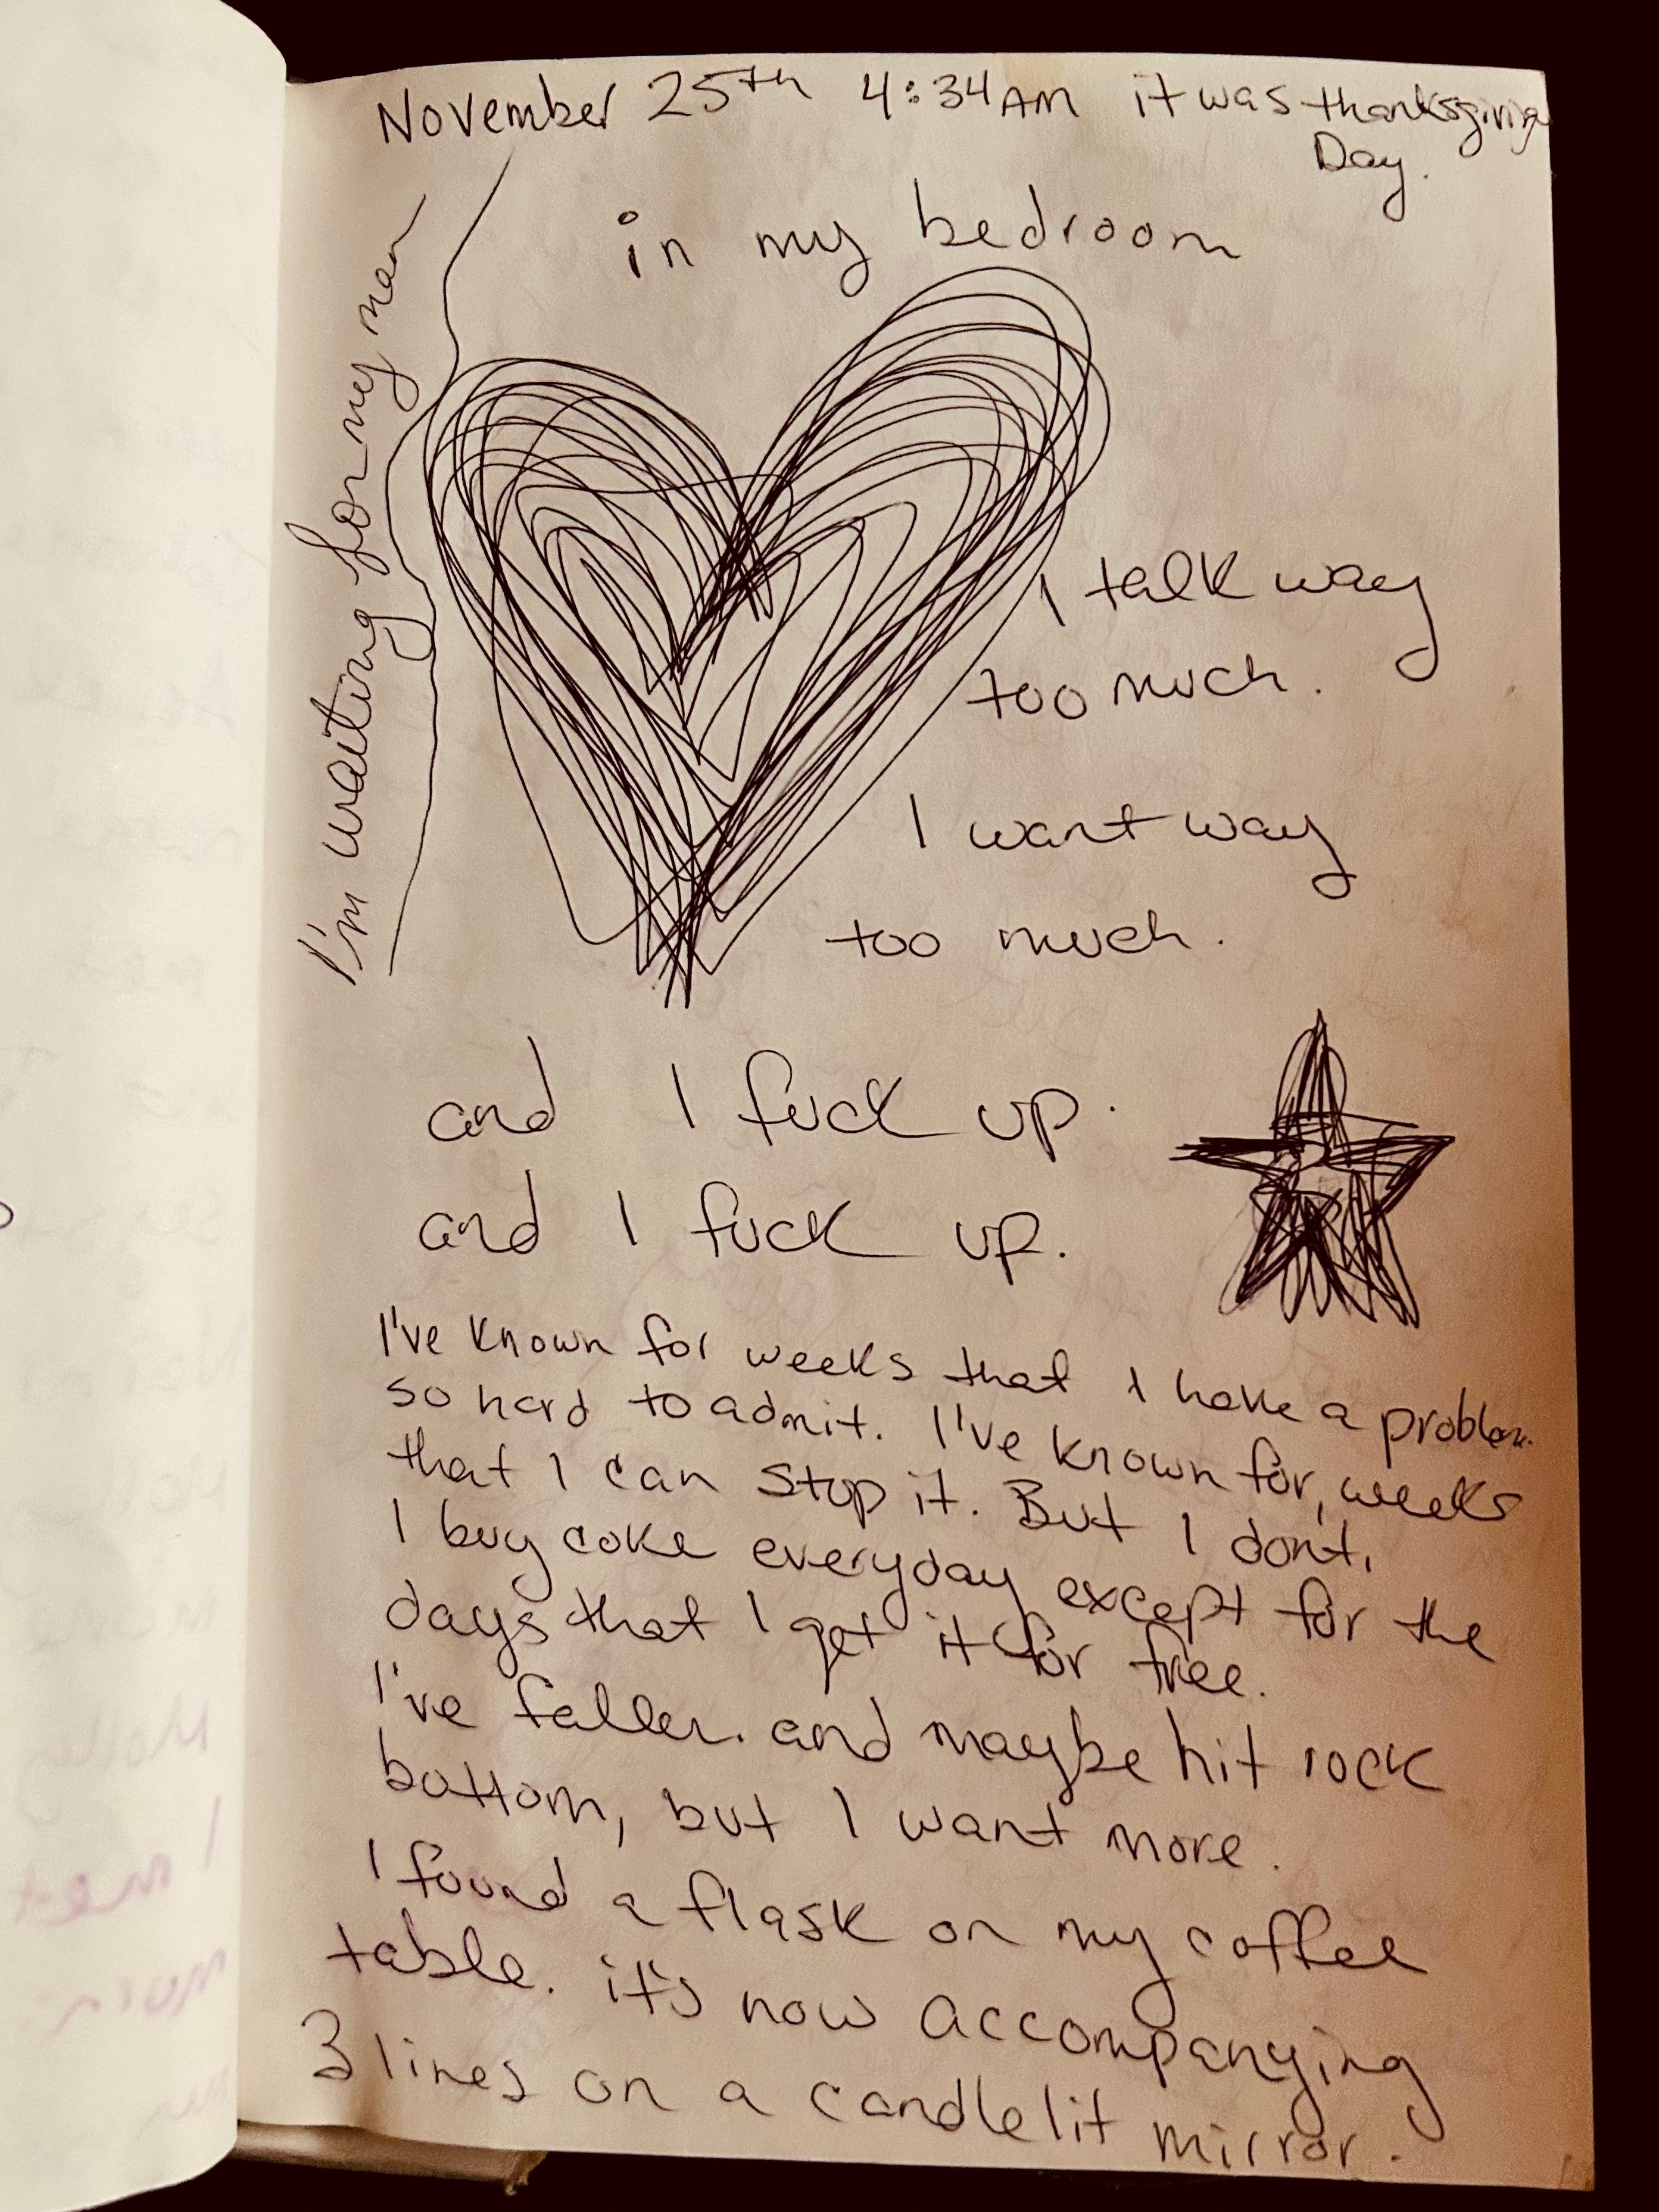 November 25th 4:34AM it was thanksgiving
Day.
in my bedroom
I'm waiting for my man
I talk way
too much.
I want way
too much.
and I fuck up.
and I fuck up.
I've known for weeks that I have a problem.
so hard to admit. I've known for, weeks
that I can stop it. But I don't.
I buy coke everyday except for the
days that I get it for free.
I've fallen. and maybe hit rock
bottom, but I want more.
I found a flask on my coffee
table. it's now accompanying
3 lines on a candlelit mirror.